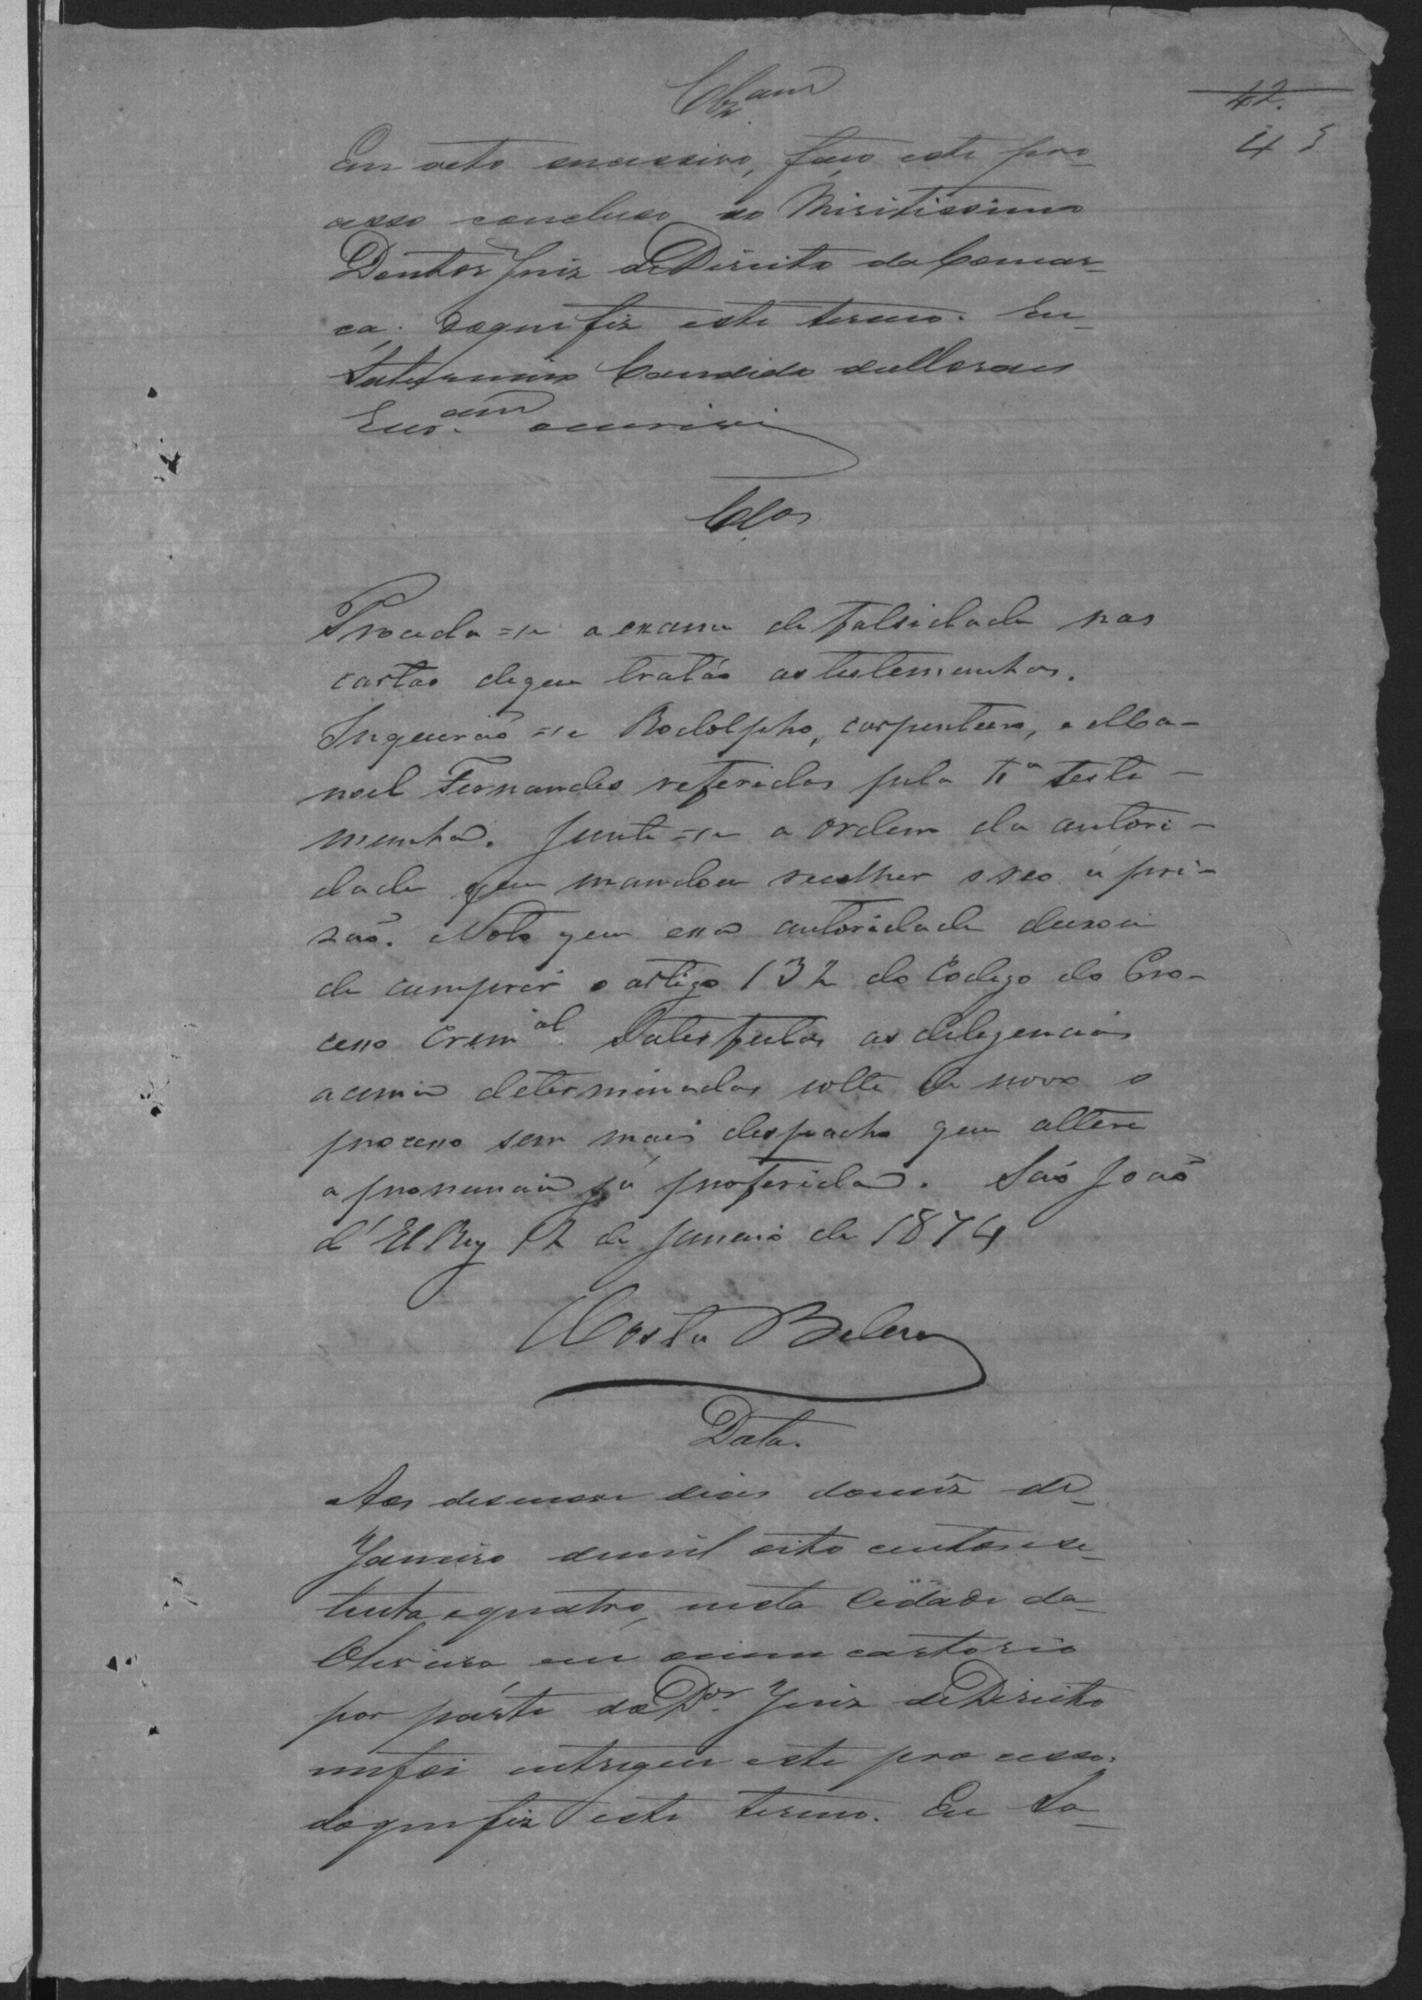 Clzam
42.
43
Em acto successivo, faço este pro-
cesso concluso ao Miritissimo
Doutor Juiz de Direito da Comar-
ca; doque fiz este termo. Eu
Saturnino Candido de Moraes
Escr.am escrivi
Clos
Proceda-se a exame de falsidade nas
cartas deque tratão as testemunhas.
Inqueirão-se Rodolpho, carpinteiro, e Ma-
noel Fernandes referidos pela 4ª teste-
munha. Junte-se a ordem da autori-
dade que mandou recolher o reo á pri-
zão. Noto que essa autoridade deixou
de cumprir o artigo 132 do Codigo do Pro-
cesso Crimal. Satisfeitas as deligencias
acima determinadas volte de novo o
processo sem mais despacho que altere
a pronuncia já proferida. São João
d'El Rey 12 de Janeiro de 1874
Costa Belem
Data.
Aos desenove dias domez de
Janeiro demil oito centos e se-
tenta equatro, nesta Cidade da
Oliveira em o meu cartorio
por parte do Dor. Juiz de Direito
mefoi entregue este processo;
doque fiz este termo. Eu Sa-